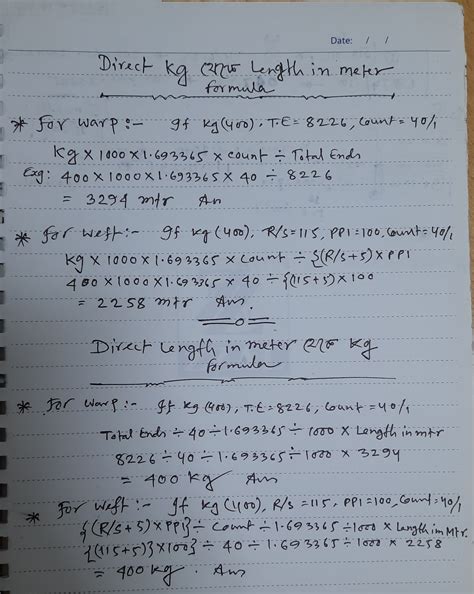 Date: / /
Direct Kg থেকে Length in meter
formula
* For Warp :- If Kg (400), T.E = 8226, Count = 40/1
Kg × 1000 × 1.693365 × count ÷ Total Ends
Exg: 400 × 1000 × 1.693365 × 40 ÷ 8226
= 3294 mtr An
* For Weft :- If Kg (400), R/S = 115, PPI = 100, Count = 40/1
Kg × 1000 × 1.693365 × Count ÷ {(R/S + 5) × PPI
400 × 1000 × 1.693365 × 40 ÷ {(115+5) × 100
= 2258 mtr Ans.
Direct Length in meter থেকে Kg
formula
* For Warp :- If Kg (400), T.E = 8226, Count = 40/1
Total Ends ÷ 40 ÷ 1.693365 ÷ 1000 × Length in mtr
8226 ÷ 40 ÷ 1.693365 ÷ 1000 × 3294
= 400 Kg An
* For Weft :- If Kg (400), R/S = 115, PPI = 100, Count = 40/1
{(R/S + 5) × PPI} ÷ Count ÷ 1.693365 ÷ 1000 × Length in Mtr.
{(115+5)} × 100} ÷ 40 ÷ 1.693365 ÷ 1000 × 2258
= 400 Kg. Ans